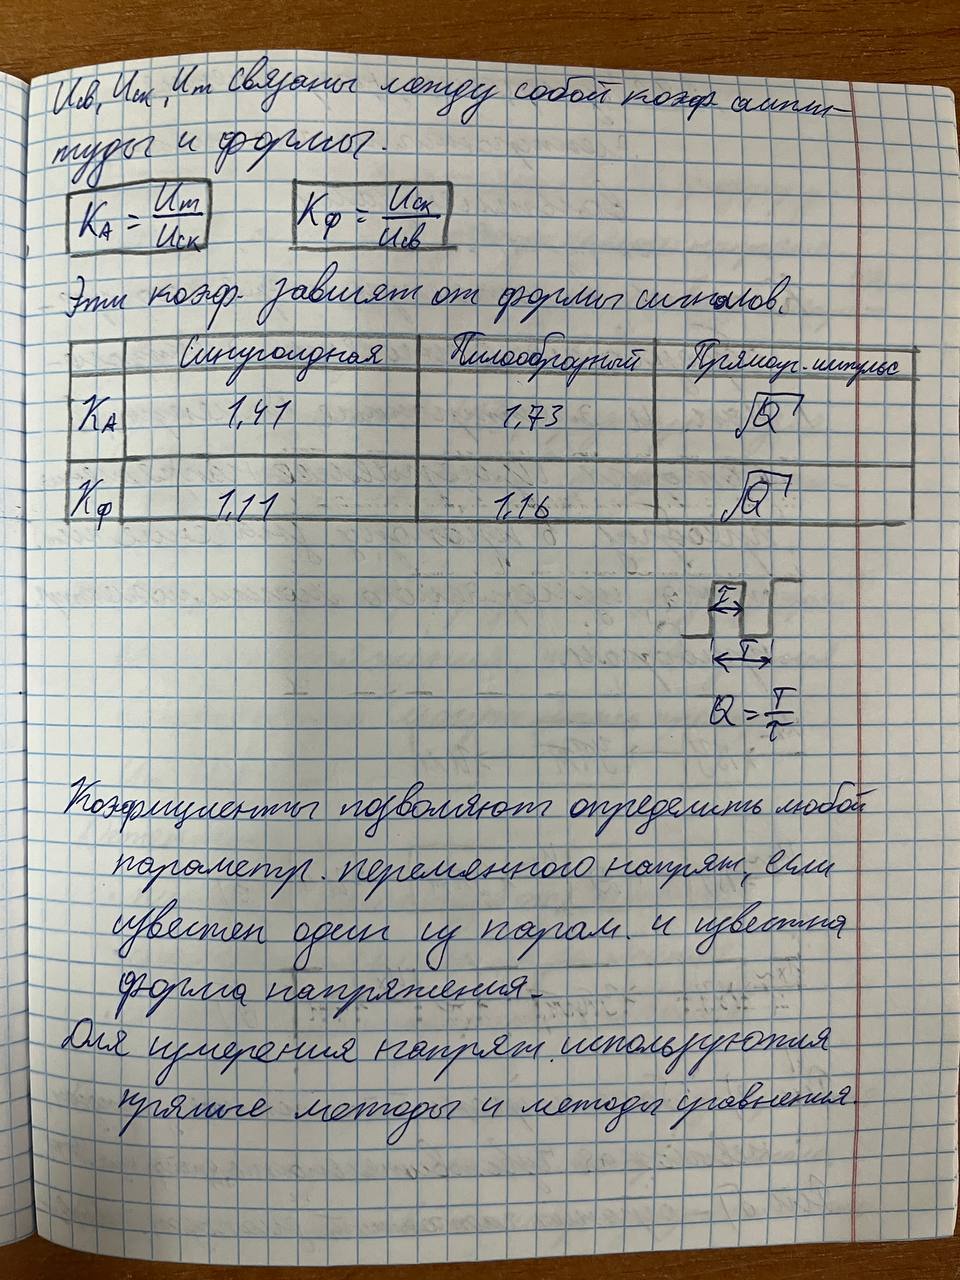 Uсв, Uск, Um связаны между собой коэф. ампли-
туды и формы.
KА = Um/Uск   KФ = Uск/Uсв
Эти коэф. зависят от формы сигналов.
Синусоидная Пилообразный Прямоуг. импульс
KА 1,41 1,73 √Q
KФ 1,11 1,16 √Q
τ
T
Q = T/τ
Коэфициенты позволяют определить любой
параметр. переменного напряж, если
известен один из парам. и известна
форма напряжения.
Для измерения напряж. используются
прямые методы и методы сравнения.